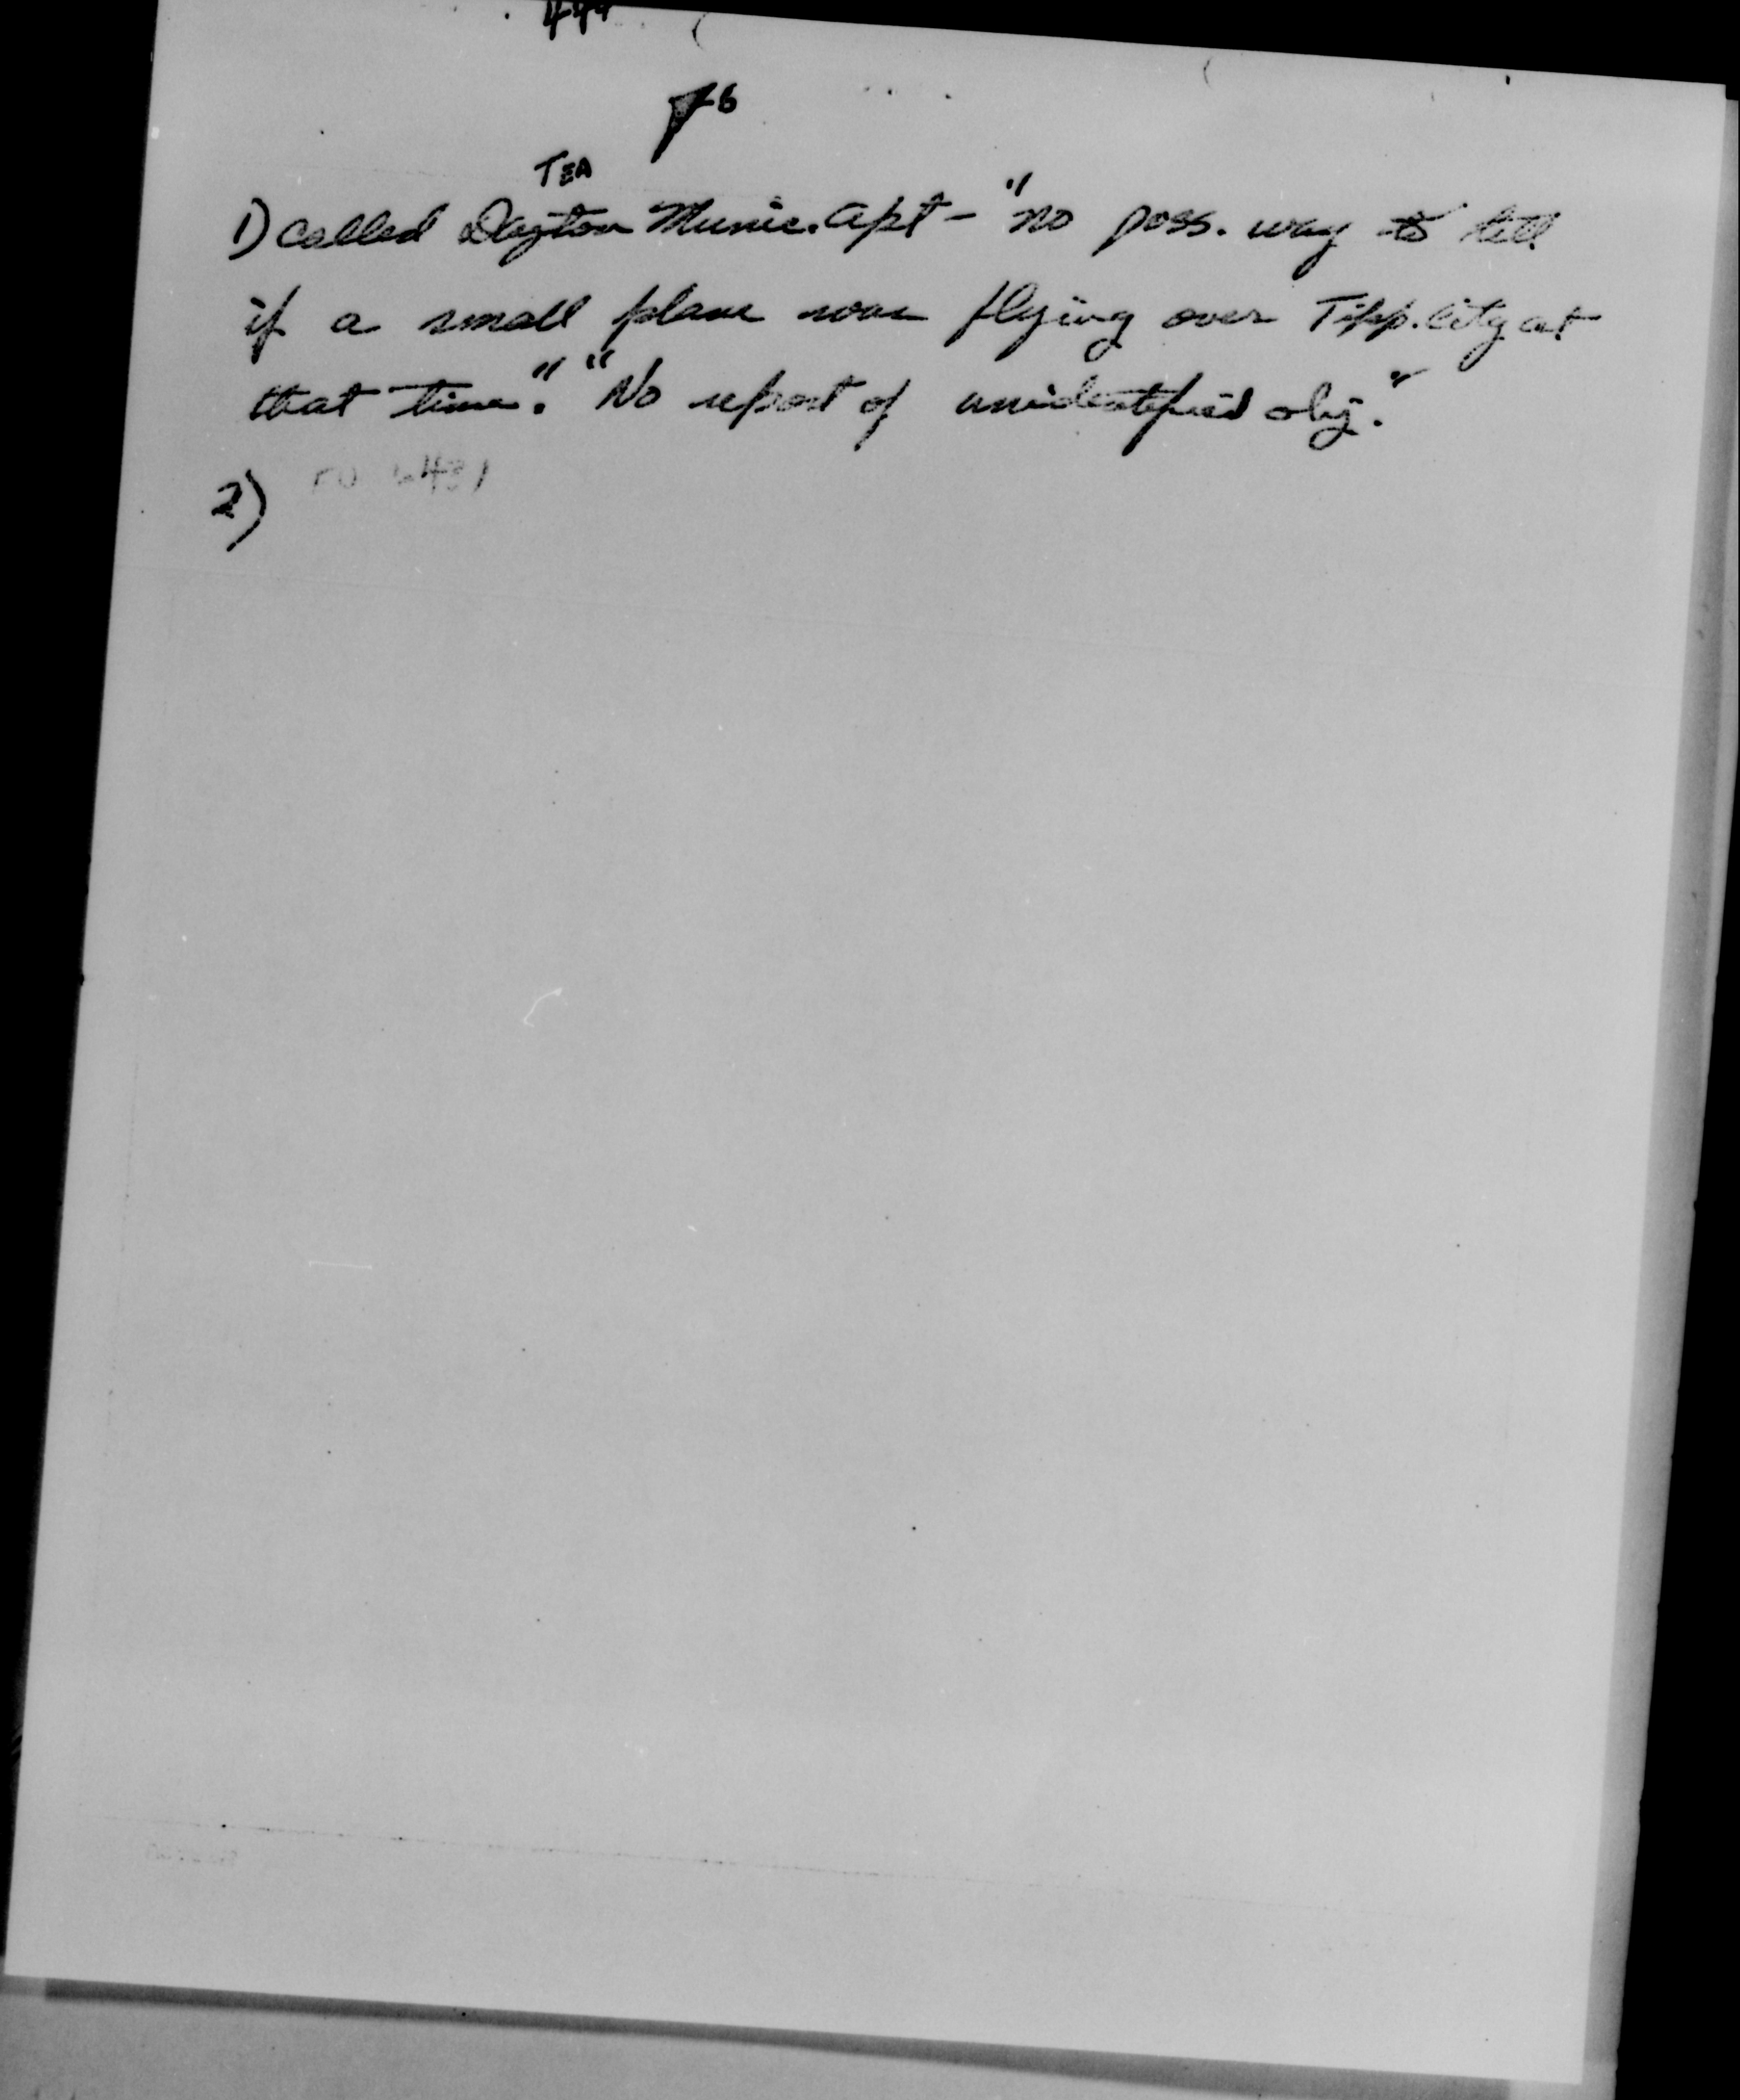 TEA
1) Called Dayton Munic. Apt - "no poss. way to tell
if a small plane was flying over Tipp. City at
that time." "No report of unidentified obj."
2)